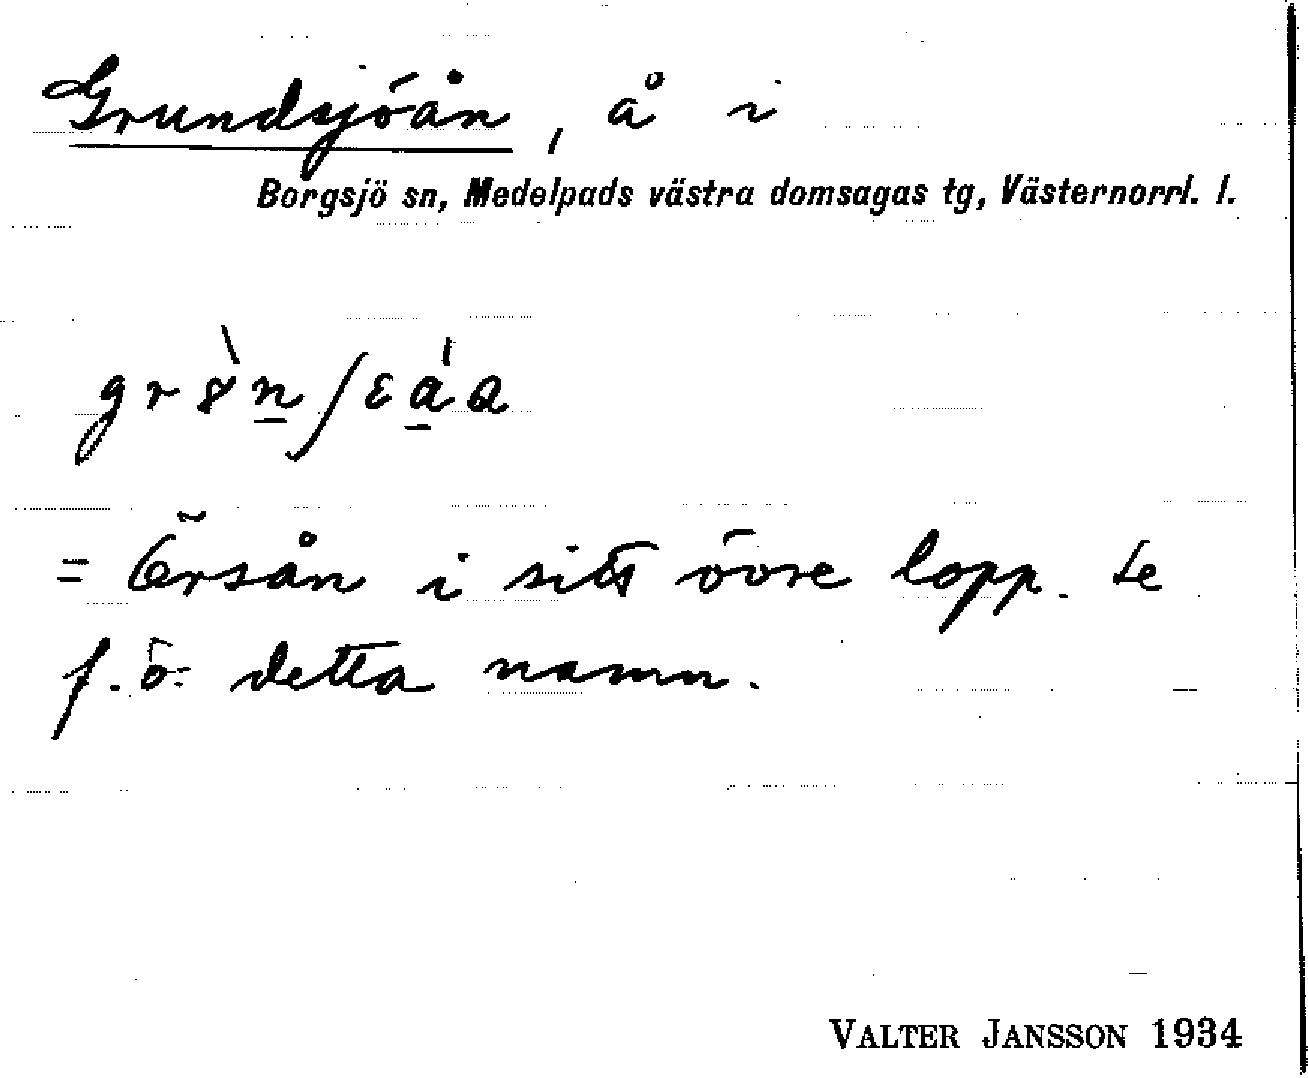 Grundsjöån, å i
Borgsjö sn, Medelpads västra domsagas tg, Västernorrl. l.
= Örsån i sitt övre lopp. Se
f. ö. detta namn.
VALTER JANSSON 1934